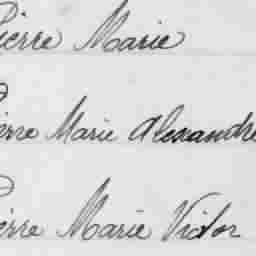 Pierre Marie
Pierre Marie Alexandre
Pierre Marie Victor